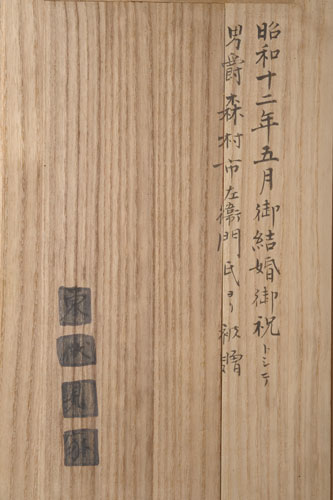 昭和十二年五月御結婚御祝トシテ
男爵森村市左衛門氏ヨリ被贈